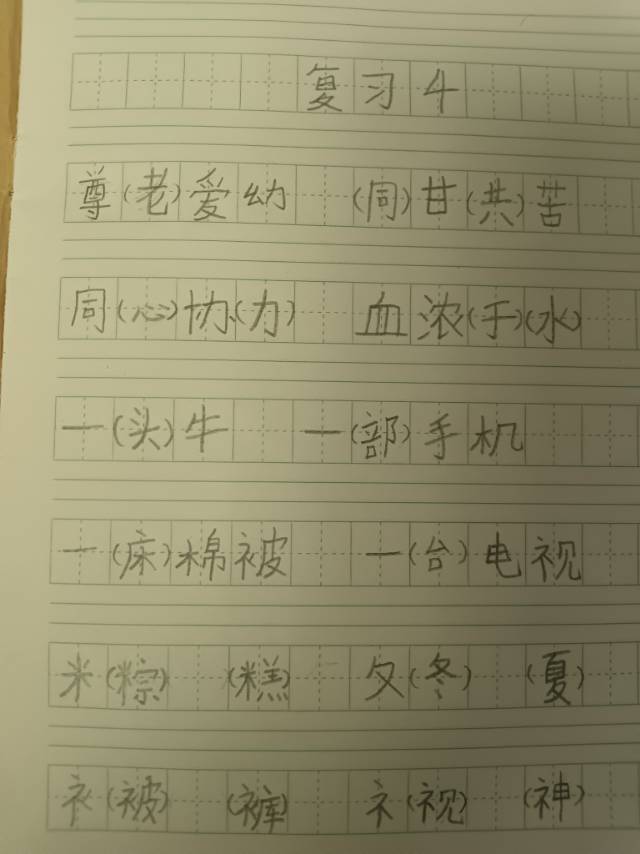 复习4
尊(老)爱幼 (同)甘(共)苦
同(心)协(力) 血浓(于)(水)
一(头)牛 一(部)手机
一(床)棉被 一(台)电视
米(粽) (糕) 夂(冬) (夏)
衤(被) (裤) 礻(视) (神)